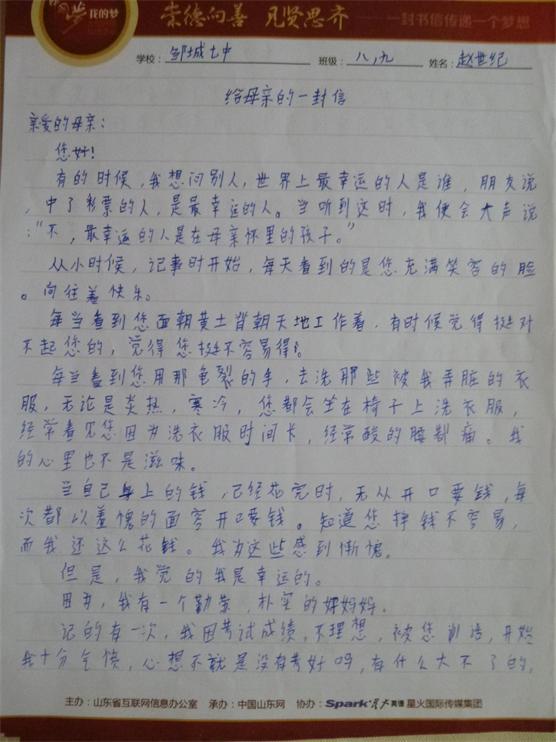 我的梦 崇德向善 见贤思齐 一封书信传递一个梦想
学校：邹城七中 班级：八、九 姓名：赵世纪
给母亲的一封信
亲爱的母亲：
您好！
有的时候，我想问别人，世界上最幸运的人是谁，朋友说
，中了彩票的人，是最幸运的人。当听到这时，我便会大声说
："不，最幸运的人是在母亲怀里的孩子。"
从小时候，记事时开始，每天看到的是您充满笑容的脸
。向往着快乐。
每当看到您面朝黄土背朝天地工作着，有时候觉得挺对
不起您的，觉得您挺不容易得。
每当看到您用那龟裂的手，去洗那些被我弄脏的衣
服，无论是炎热，寒冷，您都会坐在椅子上洗衣服，
经常看见您因为洗衣服时间长，经常酸的腰都痛。我
的心里也不是滋味。
当自己身上的钱，已经花完时，无从开口要钱，每
次都以羞愧的面容开口要钱。知道您挣钱不容易，
而我还这么花钱。我为这些感到惭愧。
但是，我觉的我是幸运的。
因为，我有一个勤劳，朴实的妈妈。
记的有一次，我因考试成绩，不理想，被您训话，开始
我十分气愤，心想不就是没有考好吗，有什么大不了的，
主办：山东省互联网信息办公室 承办：中国山东网 协办：Spark星火英语 星火国际传媒集团